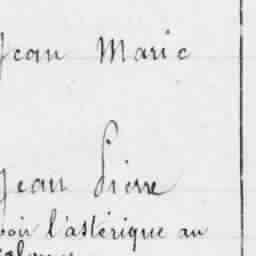 Jean Marie
Jean Pierre
voir l'astérique au